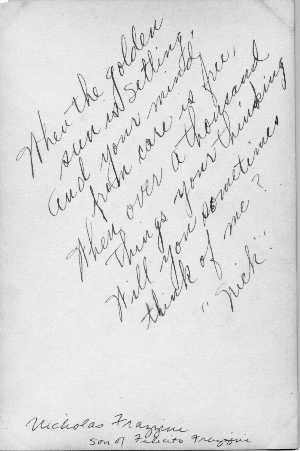 When the golden
sun is setling,
and your mind,
from care is free,
When over a thousand
things your thinking
Will you sometimes
think of me?
"Nick".
Nicholas Frazzine
son of Frazzine